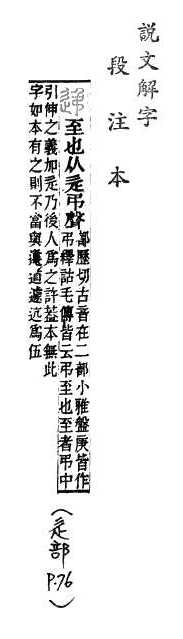 說文解字
段注本
至也从辵弔聲
都歷切古音在二部小雅盤庚皆作
弔釋詁毛傳皆云弔至也至者弔中
引伸之義加辵乃後人爲之許蓋本無此
字如本有之則不當與邍道遽迒爲伍
(辵部 P.76)